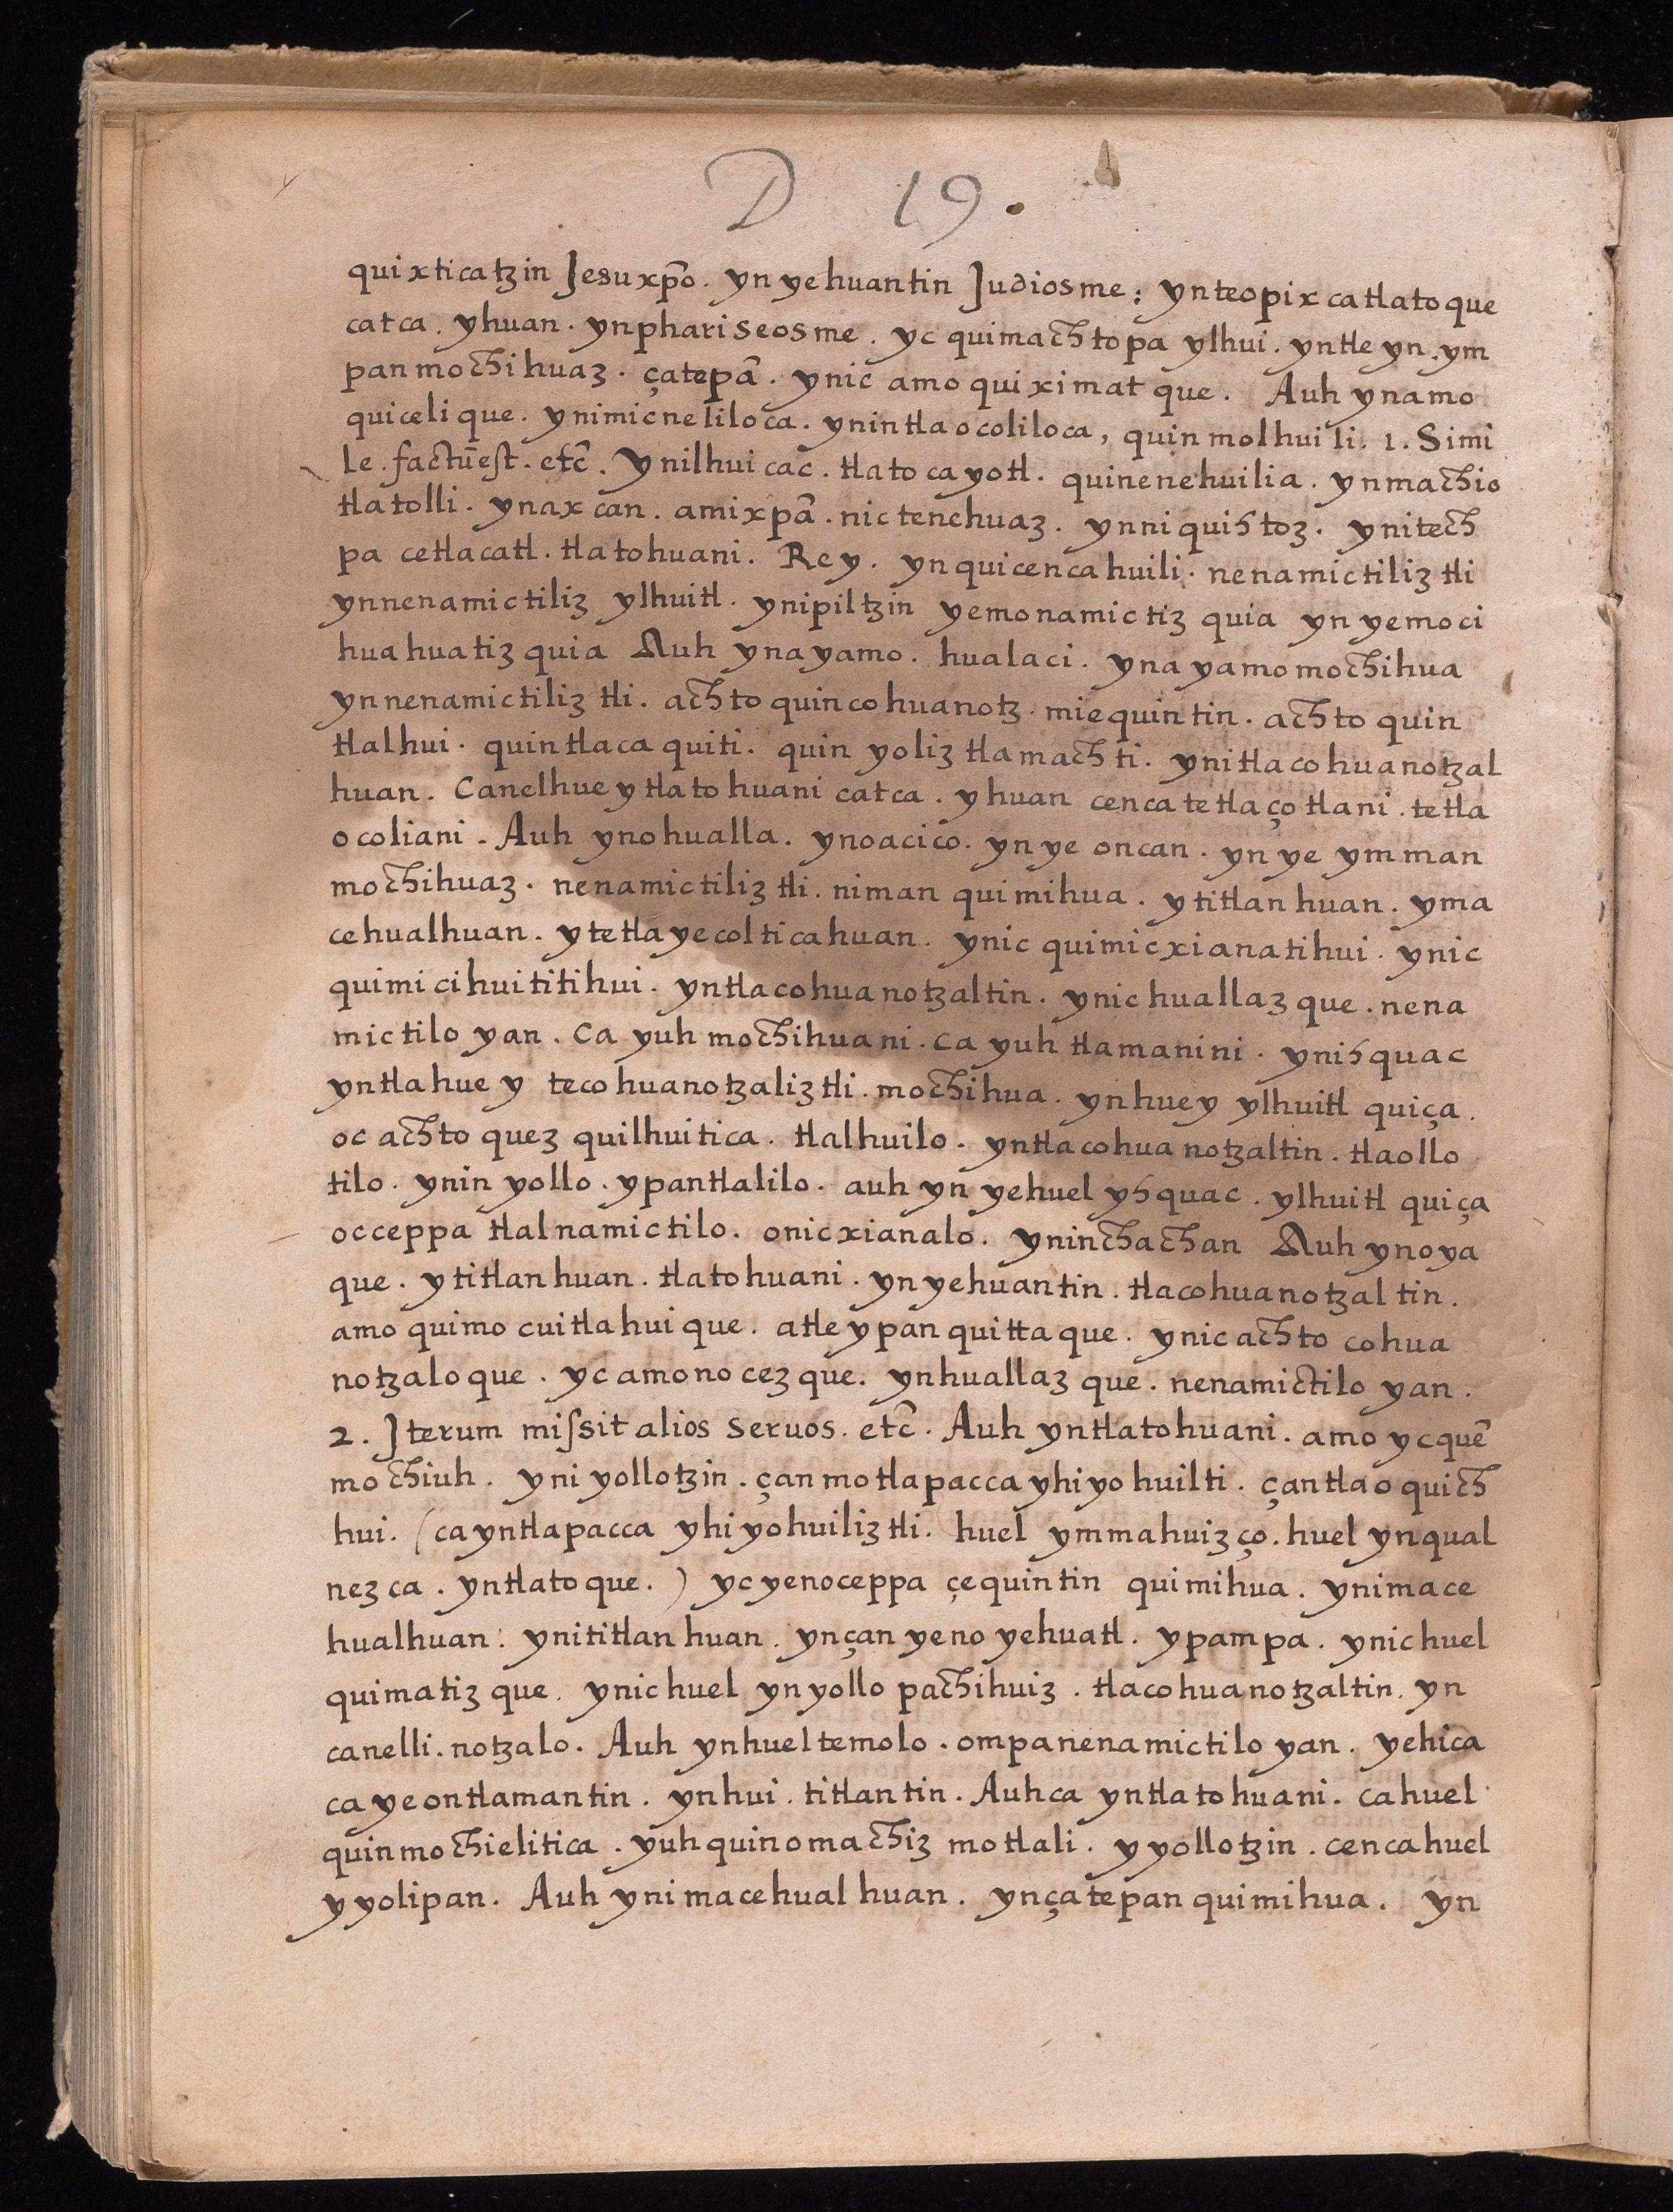 D 19.
quixticatzin Jesuxp̄o. yn yehuantin Judiosme: ynteopixcatlatoque
catca. yhuan. ynphariseosme. yc quimachtopa ylhui. yntleyn. ym
panmochihuaz. çatepā. ynic amo quiximatque. Auh ynamo
quicelique. ynimicneliloca. ynintlaocoliloca, quinmolhuili. 1. Simi
le. factūest. etc̄. Ynilhuicac. tlatocayotl. quinenehuilia. ynmachio
tlatolli. ynaxcan. amixpā. nictenehuaz. ynniquihtoz. ynitech
pa cetlacatl. tlatohuani. Rey. ynquicencahuili. nenamictiliztli
ynnenamictiliz ylhuitl. ynipiltzin yemonamictiz quia yn yemoci
huahuatiz quia Auh ynayamo. hualaci. ynayamomochihua
ynnenamictiliztli. achto quincohuanotz. miequintin. achto quin
tlalhui. quintlacaquiti. quin yoliztlamachti. ynitlacohuanotzal
huan. Canelhueytlatohuani catca. yhuan cencatetlaçotlani. tetla
ocoliani. Auh ynohualla. ynoacico. yn ye oncan. yn ye ymman
mochihuaz. nenamictiliztli. niman quimihua. ytitlanhuan. yma
cehualhuan. ytetlayecolticahuan. ynic quimicxianatihui. ynic
quimicihuititihui. yntlacohuanotzaltin. ynic huallazque. nena
mictiloyan. Ca yuh mochihuani. Ca yuh tlamanini. ynihquac
yntlahuey tecohuanotzaliztli. mochihua. ynhuey ylhuitl quiça.
oc achto quez quilhuitica. tlalhuilo. yntlacohuanotzaltin. tlaollo
tilo. ynin yollo. ypantlalilo. auh yn yehuel yhquac. ylhuitl quiça
occeppa tlalnamictilo. onicxianalo. yninchachan Auh ynoya
que. ytitlanhuan. tlatohuani. yn yehuantin. tlacohuanotzaltin.
amo quimocuitlahuique. atle ypan quittaque. ynic achto cohua
notzaloque. yc amonocezque. ynhuallazque. nenamictiloyan.
2. Jterum missit alios seruos. etc̄. Auh yntlatohuani. amo ycquē
mochiuh. yni yollotzin. çanmotlapaccayhiyohuilti. çantlaoquich
hui. (cayntlapacca yhiyohuiliztli. huel ymmahuizço. huel ynqual
nezca. yntlatoque.) yc yenoceppa çequintin quimihua. ynimace
hualhuan: ynititlanhuan. ynçan yeno yehuatl. ypampa. ynic huel
quimatizque. ynic huel ynyollo pachihuiz. tlacohuanotzaltin. yn
canelli. notzalo. Auh ynhueltemolo. ompanenamictiloyan. yehica
ca yeontlamantin. ynhui. titlantin. Auhca yntlatohuani. cahuel
quinmochielitica. yuhquinomachiz motlali. yyollotzin. cencahuel
yyolipan. Auh ynimacehualhuan. ynçatepan quimihua. yn